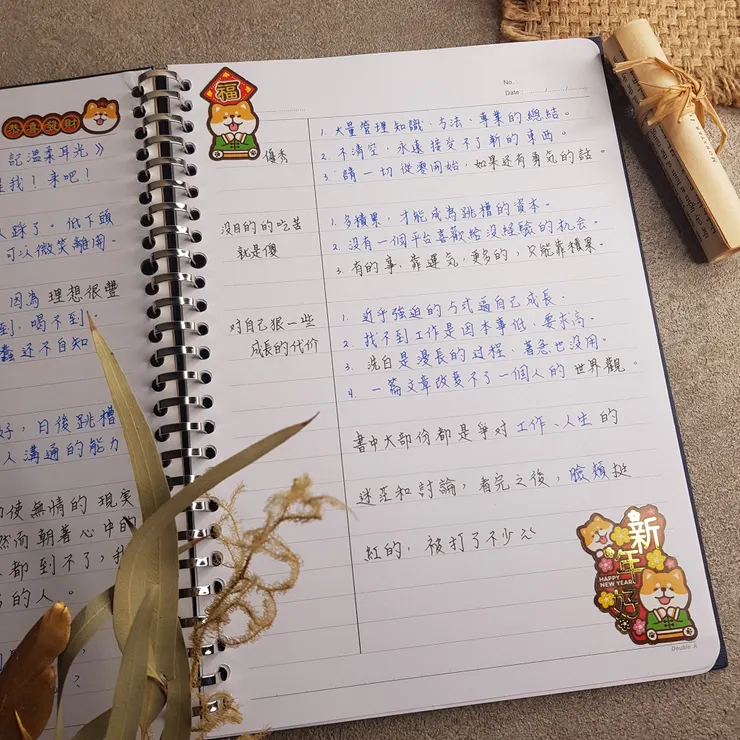 恭喜發財
記溫柔耳光》
我！來吧！
踩了。低下頭
可以微笑離開。
因為 理想很豐
到，喝不到。
還不自知
好，日後跳槽
人溝通的能力
使無情的 現實
然而朝著心中的
都到不了，我
的人。
？
福
No.
Date :
優秀
1. 大量管理知識、方法、專業的總結。
2. 不清空，永遠接受不了新的東西。
3. 請一切從零開始，如果还有勇氣的話。
沒目的的吃苦
就是傻
1. 多積累，才能成為跳槽的資本。
2. 沒有一個平台喜歡給沒經驗的机会。
3. 有的事，靠運氣，更多的，只能靠積累。
对自己狠一些
成長的代价
1. 近乎強迫的方式逼自己成長。
2. 找不到工作是因本事低、要求高。
3. 洗白是漫長的过程，著急也没用。
4. 一篇文章改变不了一個人的 世界觀。
書中大部份都是爭对 工作、人生 的
迷茫和討論，看完之後，臉頰挺
紅的，被打了不少
新年好
HAPPY
NEW YEAR!
Double A